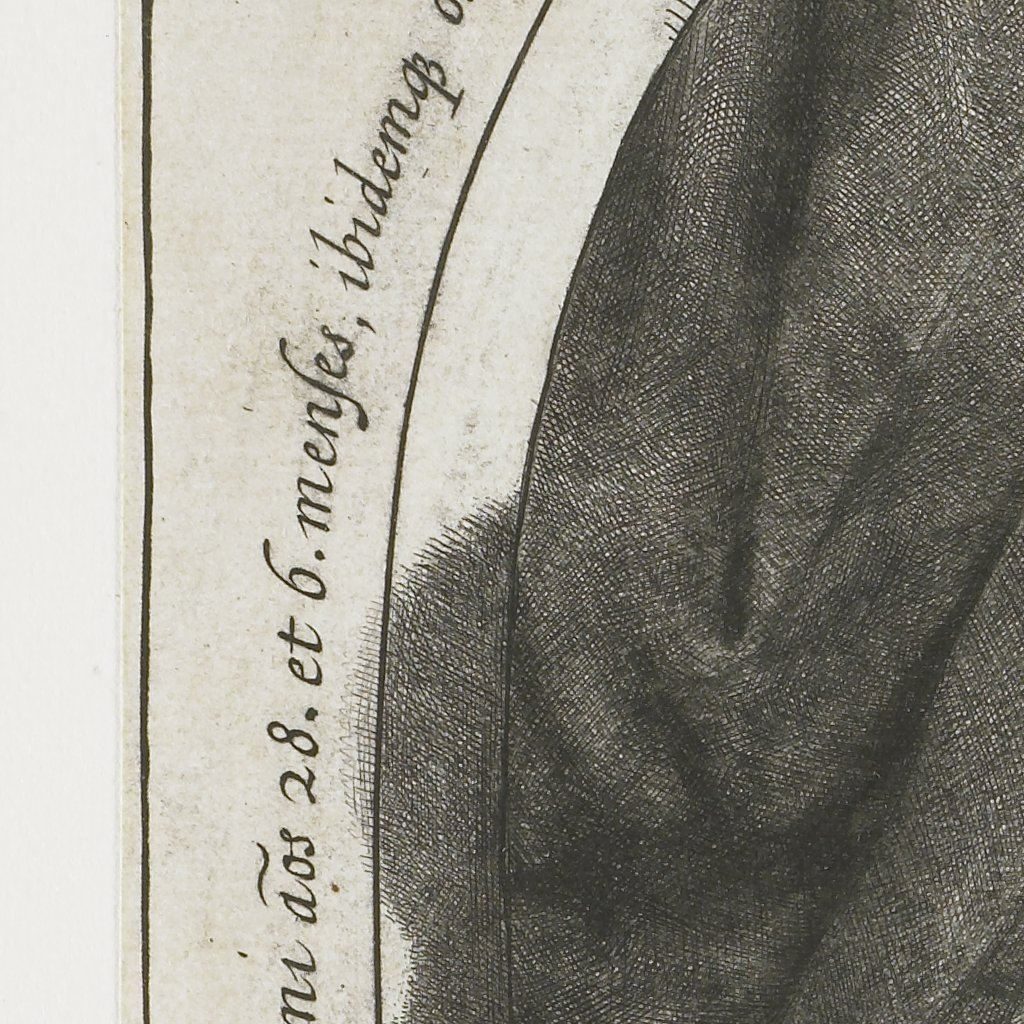 ni ãos 28. et 6. menſes, ibidemqꝫ